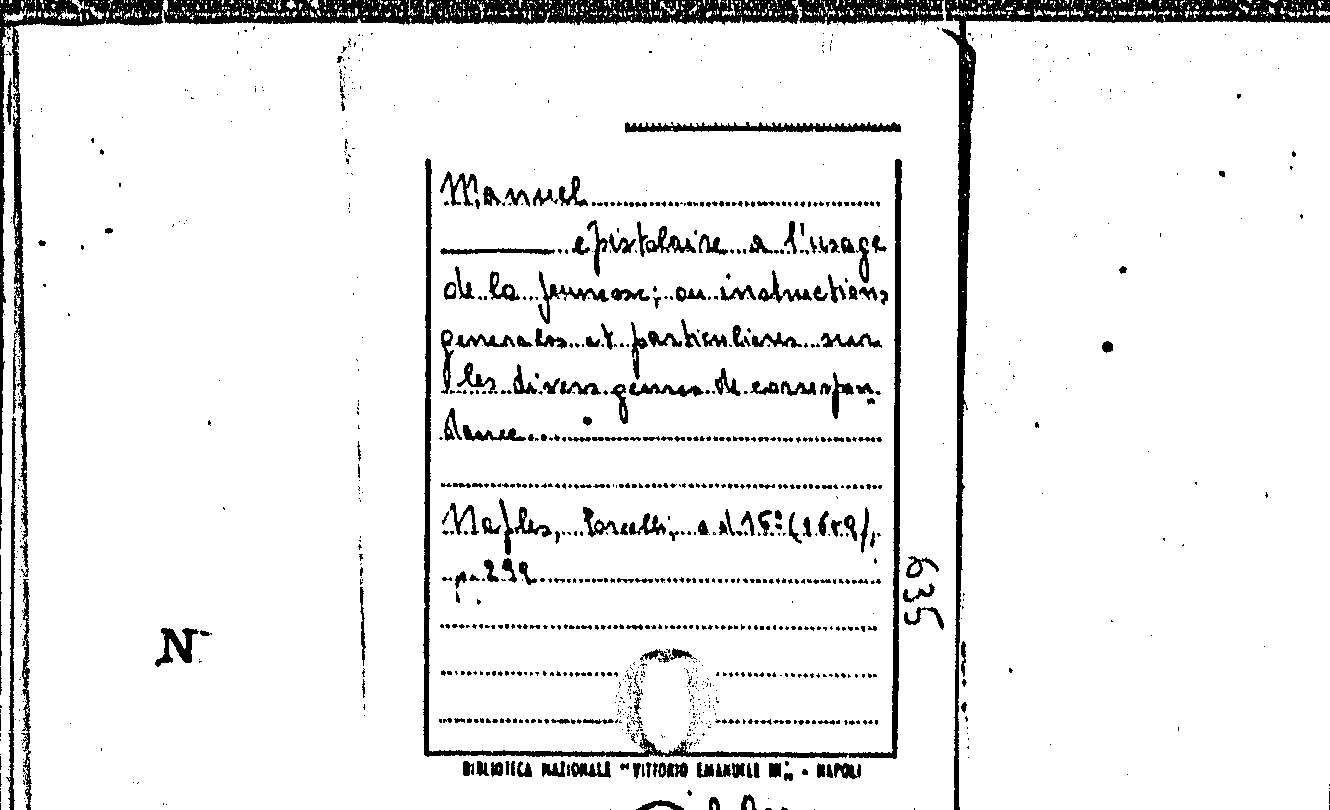 Manuel
epistolaire a l'usage
de la jeunesse; ou instructions
generales et particulieres sur
les divers genres de correspon-
dance...
Naples, Porcelli, s.d. 16º
p. 292
635
N
BIBLIOTECA NAZIONALE "VITTORIO EMANUELE III" - NAPOLI